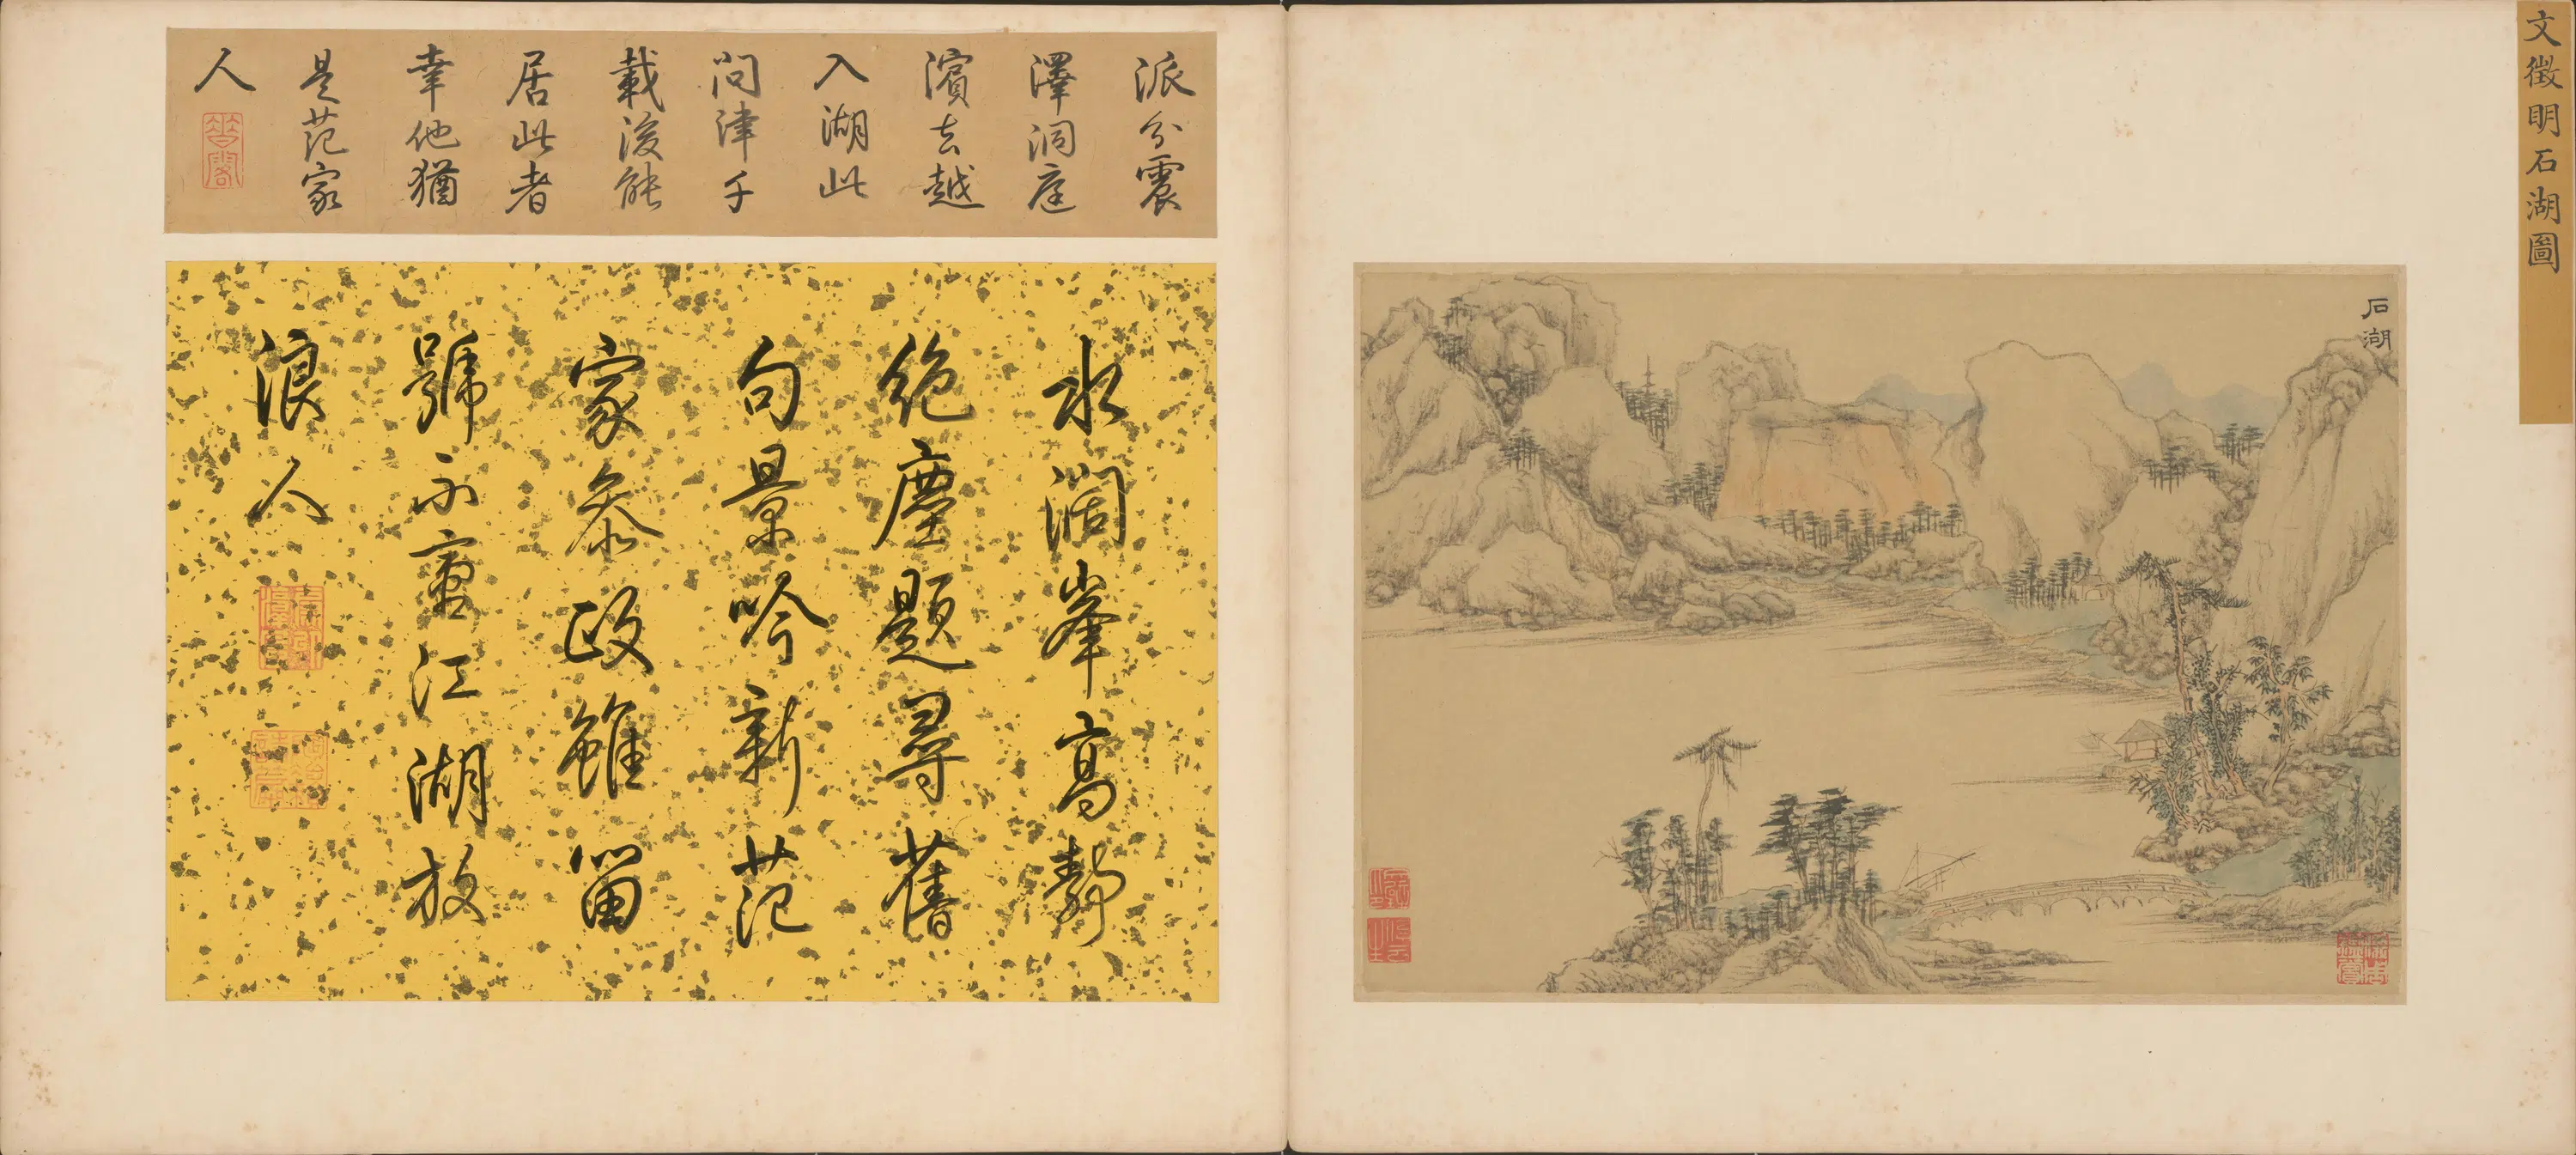 文徵明石湖圖
石湖
派分震
澤洞庭
濱去越
入湖此
問津千
載後能
居此者
幸他猶
是范家
人
水濶峯高靜
絶塵題尋舊
句景吟新范
家叅政雖畱
號不亶江湖放
浪人